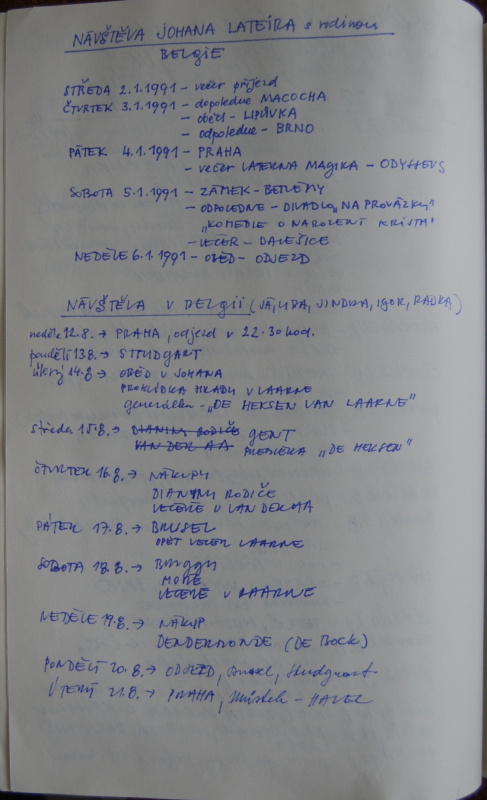 NÁVŠTĚVA JOHANA LATEIRA s rodinou
BELGIE
STŘEDA 2.1.1991 – večer příjezd
ČTVRTEK 3.1.1991 – dopoledne MACOCHA
– oběd – LIPŮVKA
– odpoledne – BRNO
PÁTEK 4.1.1991 – PRAHA
– večer LATERNA MAGIKA – ODYSSEUS
SOBOTA 5.1.1991 – ZÁMEK – BETLÉMY
– ODPOLEDNE – DIVADLO „NA PROVÁZKU"
„KOMEDIE O NAROZENÍ KRISTA"
– VEČER – DALEŠICE
NEDĚLE 6.1.1991 – OBĚD – ODJEZD
NÁVŠTĚVA V BELGII (JÁ, LIDA, JINDRA, IGOR, RADKA)
neděle 12.8. → PRAHA, odjezd v 22.30 hod.
pondělí 13.8. → STUDGART
úterý 14.8 → OBĚD U JOHANA
PROHLÍDKA HRADU V LAARNE
generálka – „DE HEKSEN VAN LAARNE"
středa 15.8. → DIANINY RODIČE GENT
VAN DER AA PREMIÉRA „DE HEKSEN"
ČTVRTEK 16.8. → NÁKUPY
DIANINY RODIČE
VEČEŘE U VAN DER AA
PÁTEK 17.8. → BRUSEL
OPĚT VEČER LAARNE
SOBOTA 18.8. → Bruggy
MOŘE
VEČEŘE V LAARNE
NEDĚLE 19.8. → NÁKUP
DENDERMONDE (DE BOCK)
PONDĚLÍ 20.8. → ODJEZD, Brusel, Studgart
ÚTERÝ 21.8. → PRAHA, – HAVEL